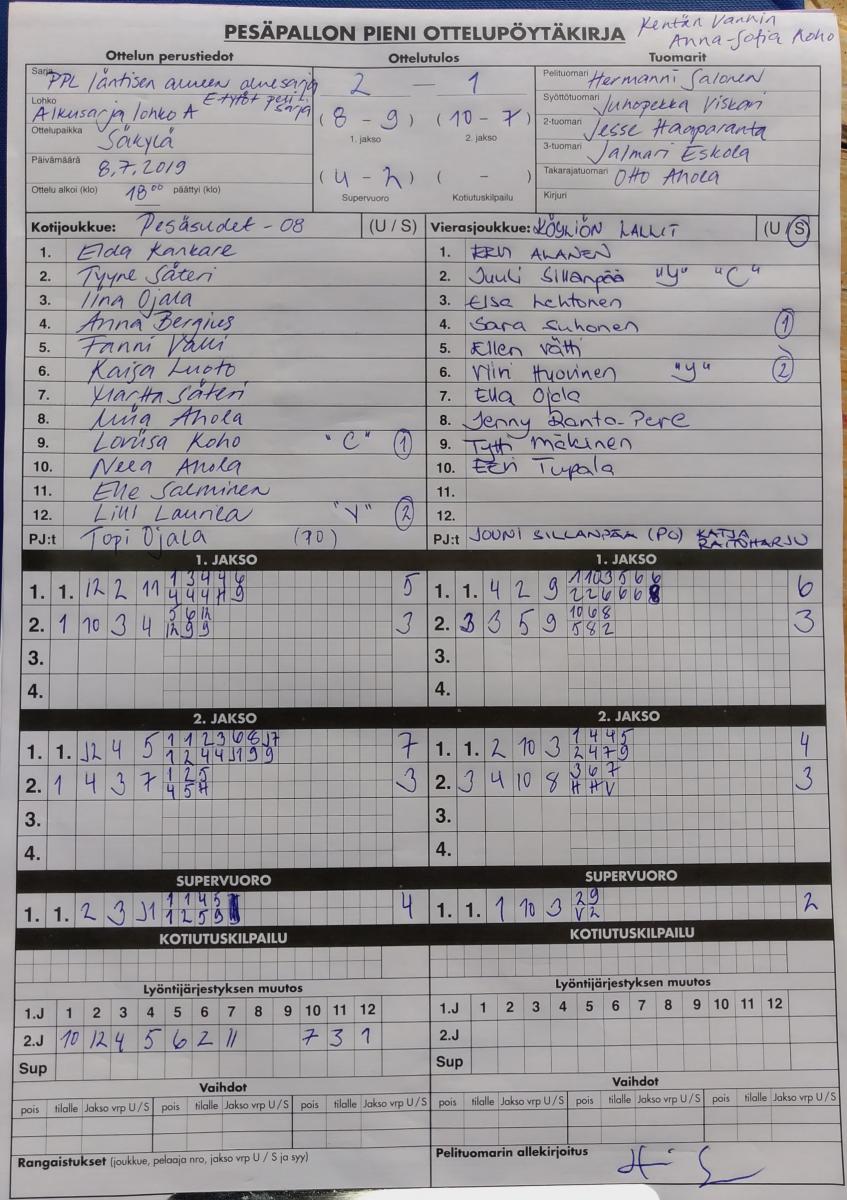 PESÄPALLON PIENI OTTELUPÖYTÄKIRJA
Kentän Vanhin
Anna-Sofia Koho
Ottelun perustiedot
Ottelutulos
Tuomarit
Sarja PPL läntisen alueen aluesarja
E-tytöt
sarja
Lohko Alkusarja lohko A
Ottelupaikka Säkylä
Päivämäärä 8.7.2019
Ottelu alkoi (klo) 18⁰⁰ päättyi (klo)
2 – 1
(8 – 9) (10 – 7)
1. jakso 2. jakso
(4 – 2) ( – )
Supervuoro Kotiutuskilpailu
Pelituomari Hermanni Salonen
Syöttötuomari Juhopekka Viskari
2-tuomari Jesse Haaparanta
3-tuomari Jalmari Eskola
Takarajatuomari Otto Ahola
Kirjuri
Kotijoukkue: Pesäsudet - 08 (U / S)
1. Elda Kankare
2. Tyyne Säteri
3. Iina Ojala
4. Anna Bergius
5. Fanni Välli
6. Kaisa Luoto
7. Martta Säteri
8. Miia Ahola
9. Loviisa Koho "C" 1
10. Neea Ahola
11. Elle Salminen
12. Lilli Laurila "V" 2
PJ:t Topi Ojala (70)
Vierasjoukkue: KÖYLIÖN LALLIT (U / S)
1. ALANEN
2. Juuli Sillanpää "V" "C"
3. Elsa Lehtonen
4. Sara Suhonen 1
5. Ellen Vätti
6. Viiri Hyovinen "V" 2
7. Ella Ojala
8. Jenny Ranto-Pere
9. Tytti Mäkinen
10. Eeri Tupala
11.
12.
PJ:t JOUNI SILLANPÄÄ (PO) KATJA RAITOHARJU
1. JAKSO
1. 1. 12 2 11 1 3 4 4 6 5
4 4 4 H 9
2. 1 10 3 4 5 6 12 3
12 9 9
3.
4.
1. JAKSO
1. 1. 4 2 9 1 10 3 5 6 6 6
2 2 6 6 6 8
2. 3 3 5 9 10 6 8 3
5 8 2
3.
4.
2. JAKSO
1. 1. 12 4 5 1 1 2 3 6 8 17 7
1 2 4 4 11 9 9
2. 1 4 3 7 1 2 5 3
4 5 H
3.
4.
2. JAKSO
1. 1. 2 10 3 1 4 4 5 4
2 4 7 9
2. 3 4 10 8 3 6 7 3
H H V
3.
4.
SUPERVUORO
1. 1. 2 3 11 1 1 4 5 4
1 2 5 9
SUPERVUORO
1. 1. 1 10 3 2 9 2
V 2
KOTIUTUSKILPAILU
KOTIUTUSKILPAILU
Lyöntijärjestyksen muutos
1.J 1 2 3 4 5 6 7 8 9 10 11 12
2.J 10 12 4 5 6 2 11 7 3 1
Sup
Lyöntijärjestyksen muutos
1.J 1 2 3 4 5 6 7 8 9 10 11 12
2.J
Sup
Vaihdot
pois tilalle Jakso vrp U / S pois tilalle Jakso vrp U / S pois tilalle Jakso vrp U / S
Vaihdot
pois tilalle Jakso vrp U / S pois tilalle Jakso vrp U / S pois tilalle Jakso vrp U / S
Rangaistukset (joukkue, pelaaja nro, jakso vrp U / S ja syy)
Pelituomarin allekirjoitus